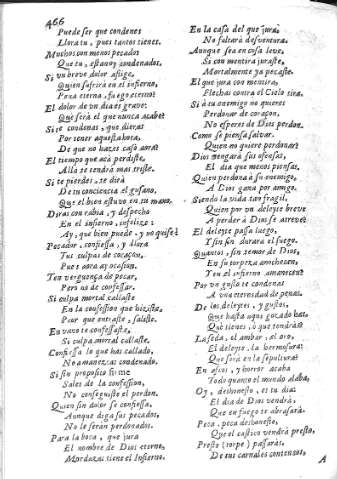 466
Puede ser que condenes
Llora tu, pues tantos tienes.
Muchos con menos pecados
Que tu, estan ya condenados.
Si un breve dolor aflige,
Quien sufrirà en el infierno,
Pena eterna, fuego eterno?
El dolor de un dia es grave:
Què serà el que nunca acabe?
Si te condenas, què dieras
Por tener aquesta hora,
De que no hazes caso aora?
El tiempo que acà perdiste,
Allà te tendrà mas triste.
Si te pierdes, te dirà
De tu conciencia el gusano,
Que el bien estuvo en tu mano.
Diràs con rabia, y despecho
En el infierno, infelize:
Ay, que bien pude, y no quise!
Pecador, confiessa, y llora
Tus culpas de coraçon,
Pues aora ay ocasion.
Ten verguença de pecar,
Pero no de confessar.
Si culpa mortal callaste
En la confession que hiziste,
Peor que entraste, saliste.
En vano te confessaste,
Si culpa mortal callaste.
Confiessa lo que has callado,
No amanezcas condenado.
Si sin proposito firme
Sales de la confession,
No conseguiste el perdon.
Quien sin dolor se confiessa,
Aunque diga sus pecados,
No le seràn perdonados.
Para la boca, que jura
El nombre de Dios eterno,
Mordazas tiene el Infierno.
En la casa del que jura,
No faltarà desventura.
Aunque sea en cosa leve,
Si con mentira juraste,
Mortalmente ya pecaste.
El que jura con mentira,
Flechas contra el Cielo tira.
Si à tu enemigo no quieres
Perdonar de coraçon,
No esperes de Dios perdon.
Como se piensa salvar,
Quien no quiere perdonar?
Dios vengarà sus ofensas,
El dia que menos piensas.
Quien perdona à su enemigo,
A Dios gana por amigo.
Siendo la vida tan fragil,
Quien por un deleyte breve
A perder à Dios se atreve?
El deleyte passa luego,
Y sin fin durarà el fuego.
Quantos, sin temor de Dios,
En su torpeza anochecen,
Y en el infierno amanecen?
Por un gusto te condenas
A una eternidad de penas.
De los deleytes, y gustos,
Que hasta aqui gozado has,
Què tienes, ò què tendràs?
La seda, el ambar, el oro,
El deleyte, la hermosura:
Què serà en la sepultura?
En ascos, y horror acaba
Todo quanto el mundo alaba,
Oy, deshonesto, es tu dia:
El dia de Dios vendrà,
Que en fuego te abrasarà.
Peca, peca deshonesto,
Que el castigo vendrà presto,
Presto (torpe) passaràn
De tus carnales contentos,
A